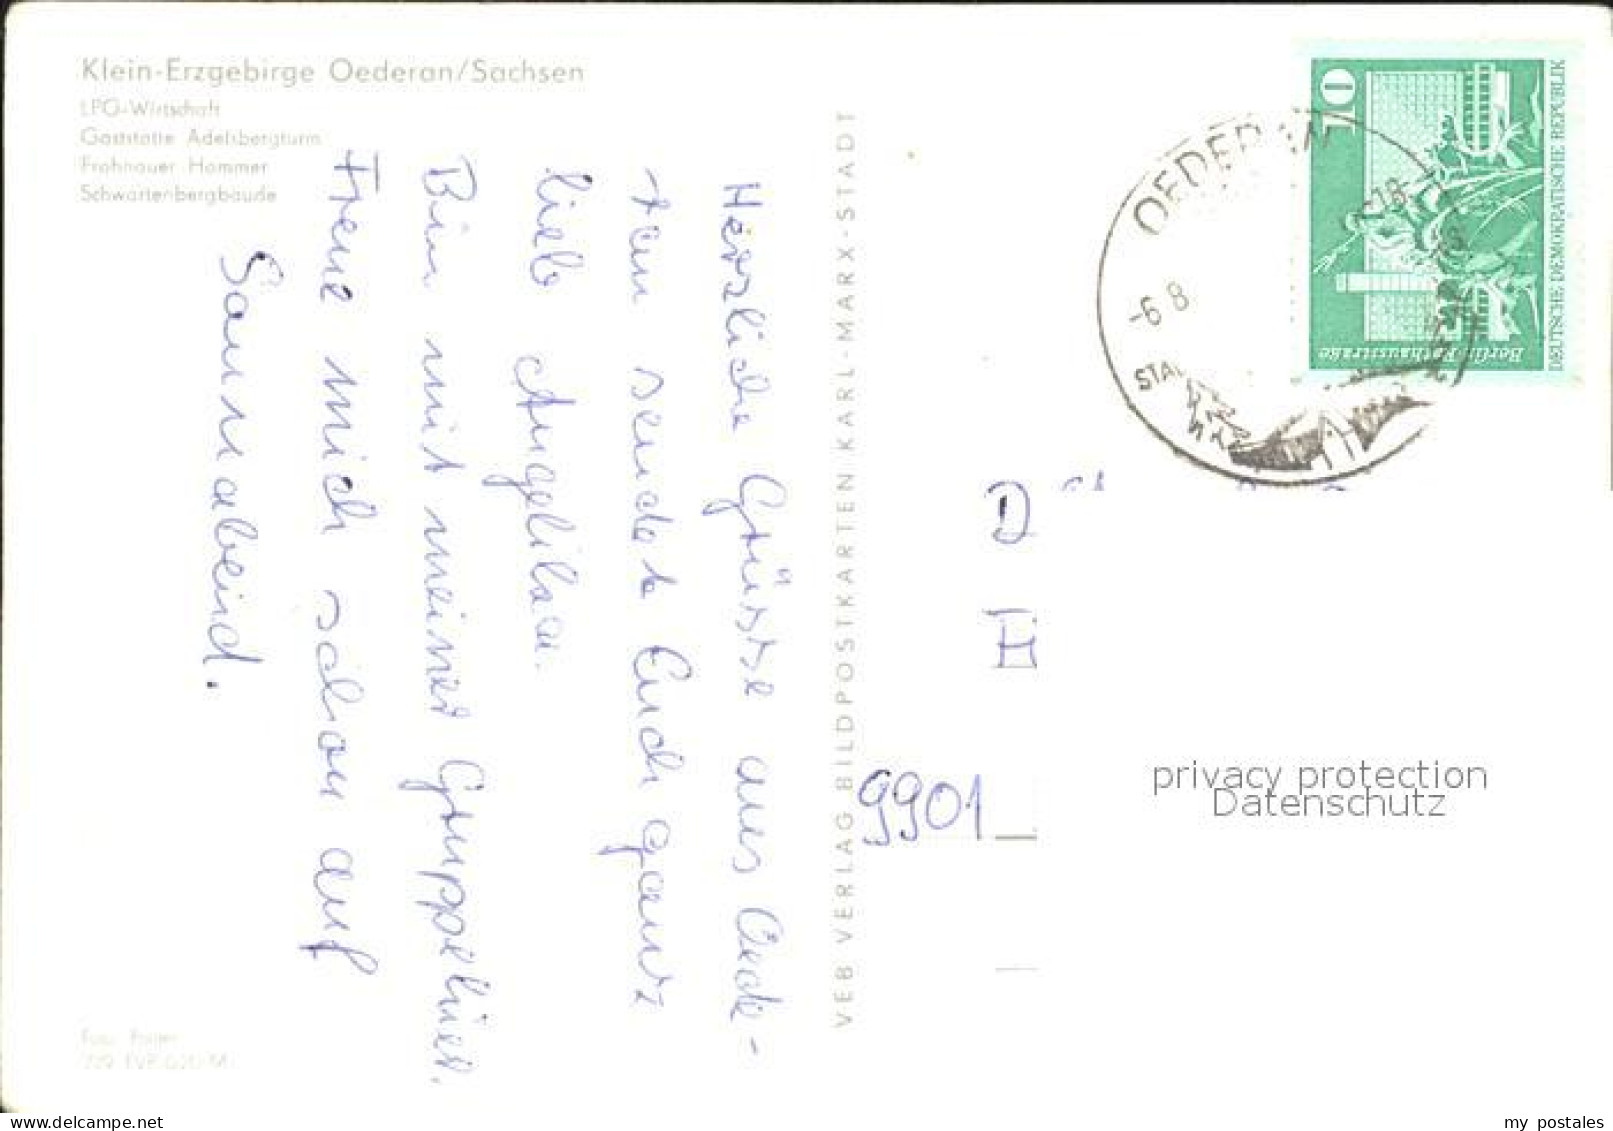 Klein-Erzgebirge Oederan/Sachsen
LPG-Wirtschaft
Gaststätte Adelsbergturm
Frohnauer Hammer
Schwartenbergbaude
Herzliche Grüsse aus Oede-
ran sendet Euch ganz
lieb Angelika.
Bin mit meiner Gruppe hier.
Freue mich schon auf
Sonnabend.
VEB VERLAG BILDPOSTKARTEN KARL-MARX-STADT
OEDERAN
-6 8
10
Berlin-Rathausstraße
DEUTSCHE DEMOKRATISCHE REPUBLIK
D
H
9901
privacy protection
Datenschutz
Foto:
delcampe.net
my postales